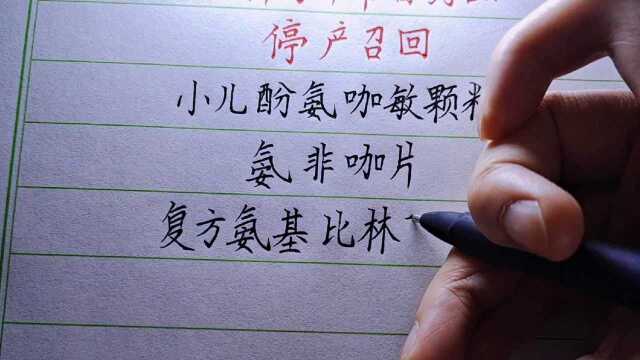 停产召回
小儿酚氨咖敏颗粒
氨非咖片
复方氨基比林